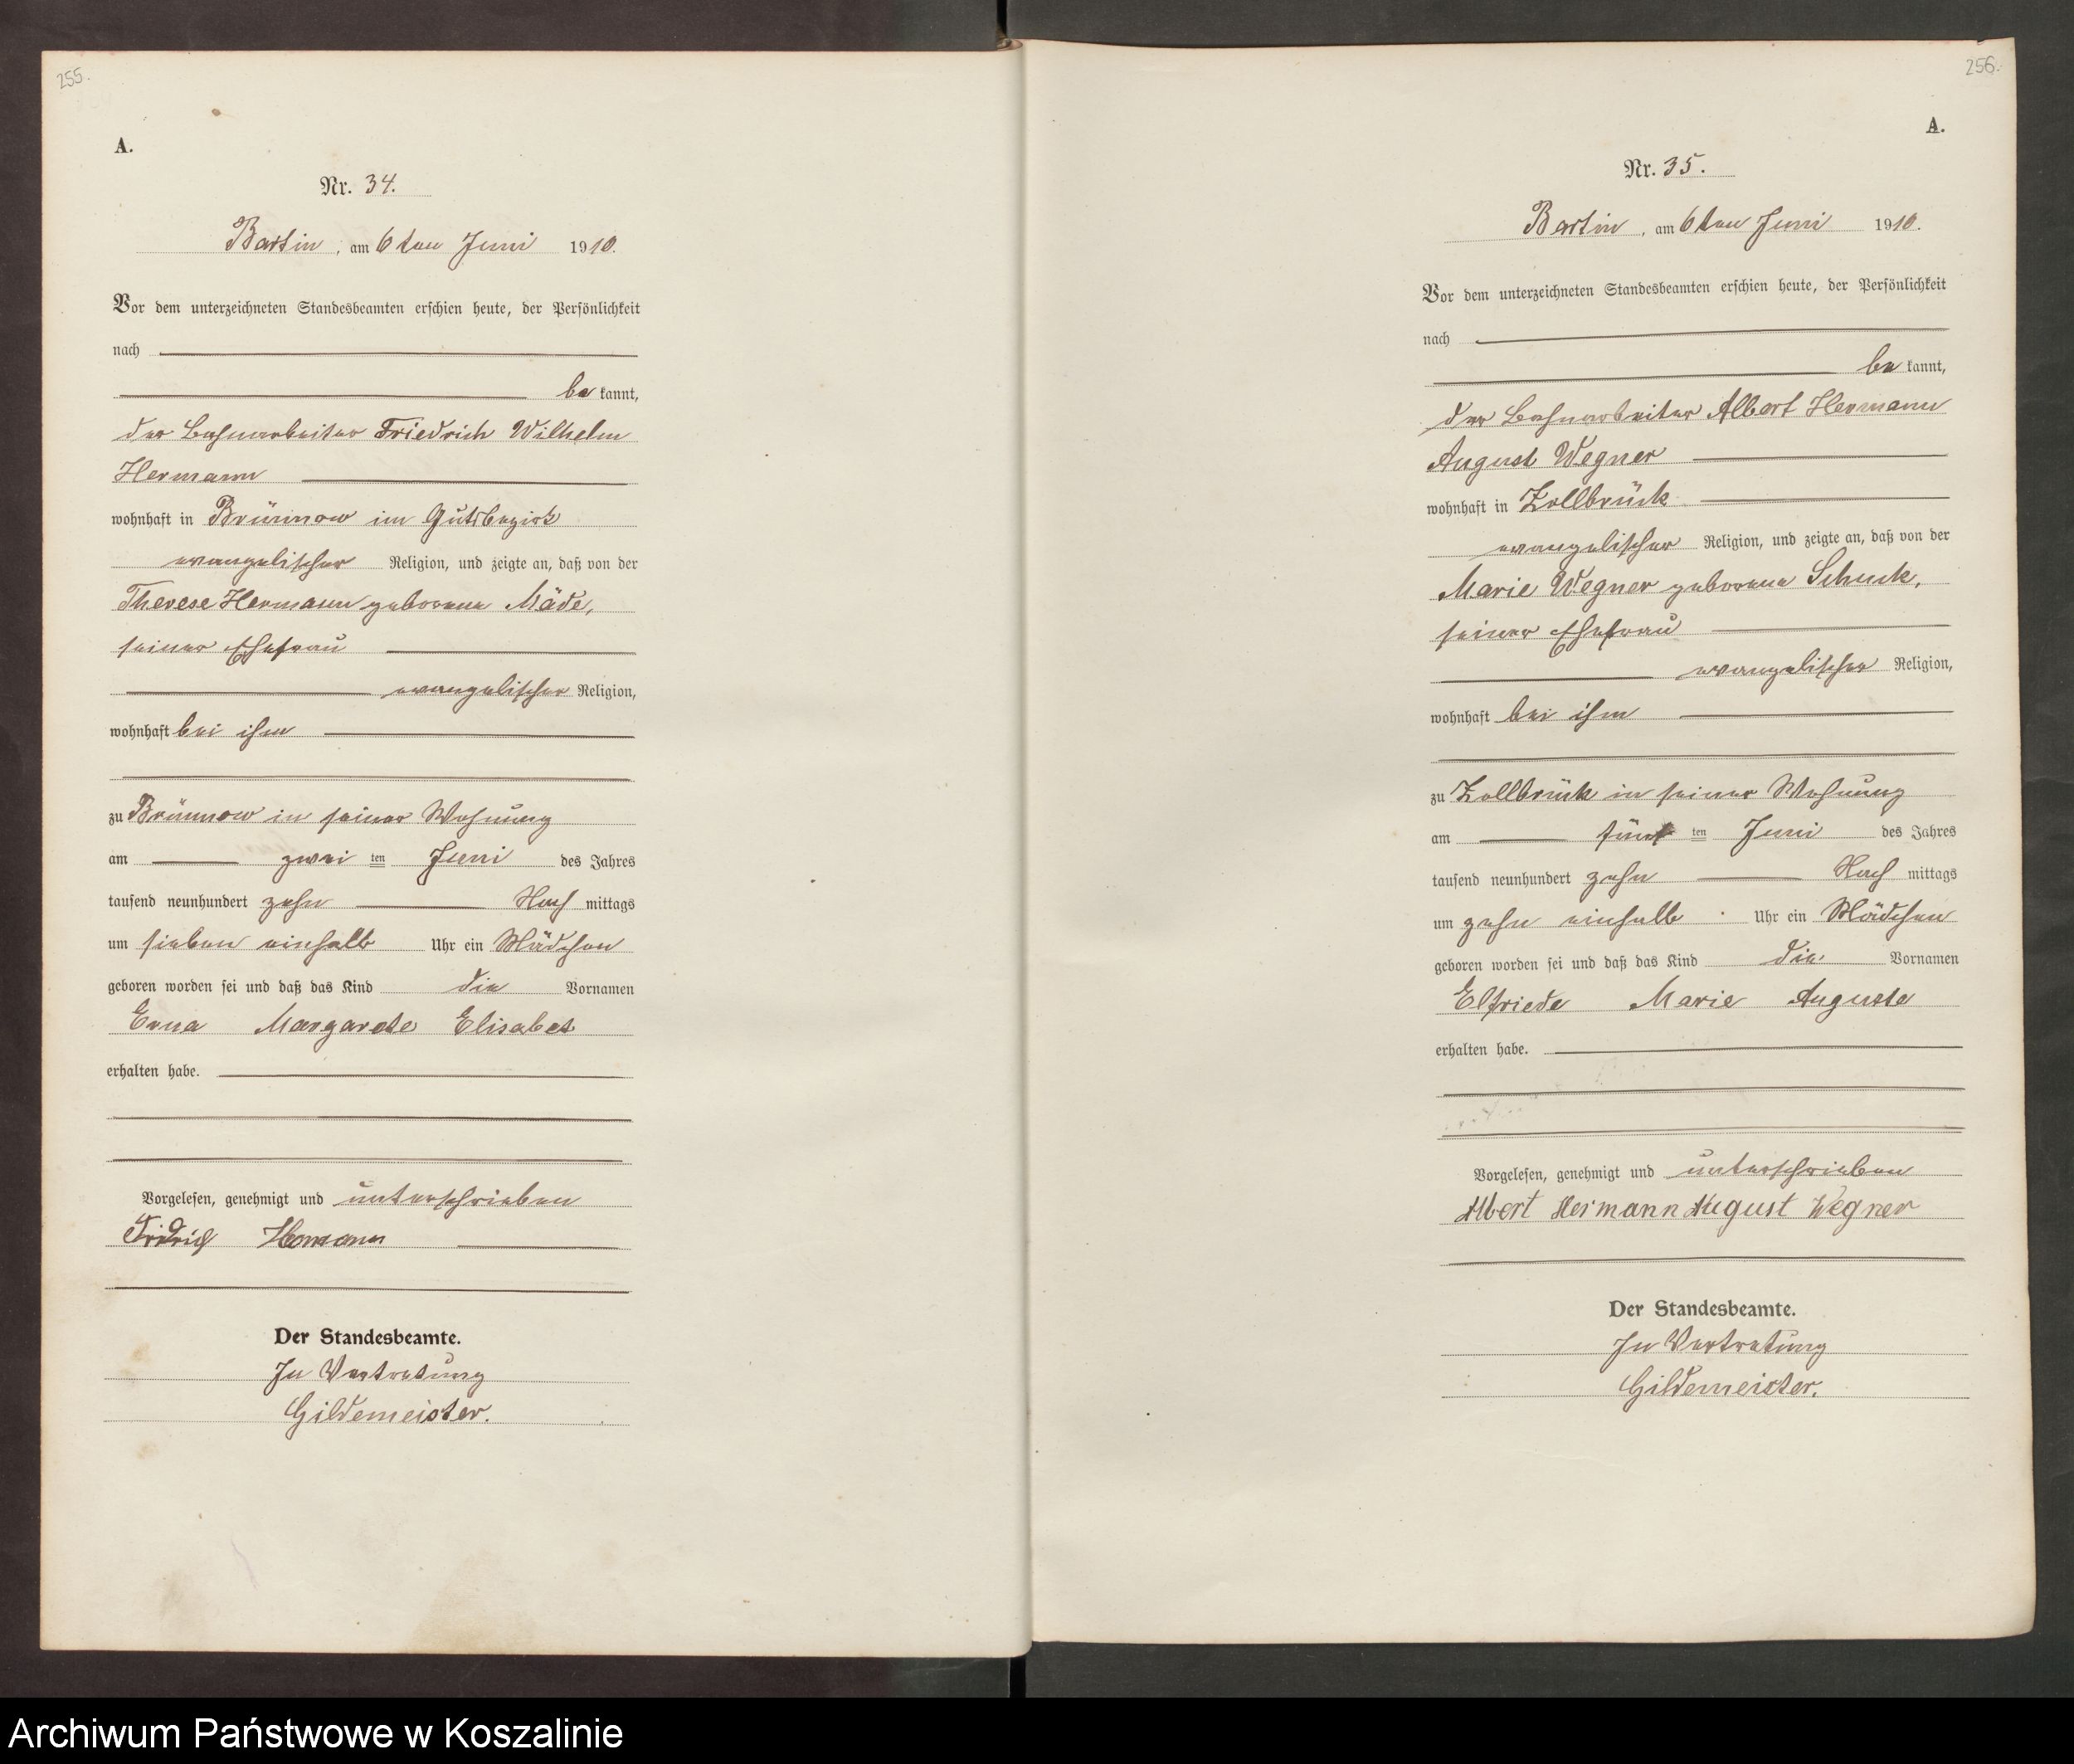 255.
A.
Nr. 34.
Bartin, am 6ten Juni 1910.
Vor dem unterzeichneten Standesbeamten erschien heute, der Persönlichkeit
nach
bekannt,
der Bahnarbeiter Friedrich Wilhelm
Hermann
wohnhaft in Brünnow im Gutsbezirk
evangelischer Religion, und zeigte an, daß von der
Therese Hermann geborene Mäde,
seiner Ehefrau
evangelischer Religion,
wohnhaft bei ihm
zu Brünnow in seiner Wohnung
am zwei ten Juni des Jahres
tausend neunhundert zehn Nachmittags
um sieben einhalb Uhr ein Mädchen
geboren worden sei und daß das Kind die Vornamen
Erna Margarete Elisabet
erhalten habe.
Vorgelesen, genehmigt und unterschrieben
Fridrich Hermann
Der Standesbeamte.
In Vertretung
Gildemeister.
256.
A.
Nr. 35.
Bartin, am 6ten Juni 1910.
Vor dem unterzeichneten Standesbeamten erschien heute, der Persönlichkeit
nach
bekannt,
der Bahnarbeiter Albert Hermann
August Wegner
wohnhaft in Zollbrück
evangelischer Religion, und zeigte an, daß von der
Marie Wegner geborene Schuck,
seiner Ehefrau
evangelischer Religion,
wohnhaft bei ihm
zu Zollbrück in seiner Wohnung
am fünf ten Juni des Jahres
tausend neunhundert zehn Nachmittags
um zehn einhalb Uhr ein Mädchen
geboren worden sei und daß das Kind die Vornamen
Elfriede Marie Auguste
erhalten habe.
Vorgelesen, genehmigt und unterschrieben
Albert Hermann August Wegner
Der Standesbeamte.
In Vertretung
Gildemeister.
Archiwum Państwowe w Koszalinie